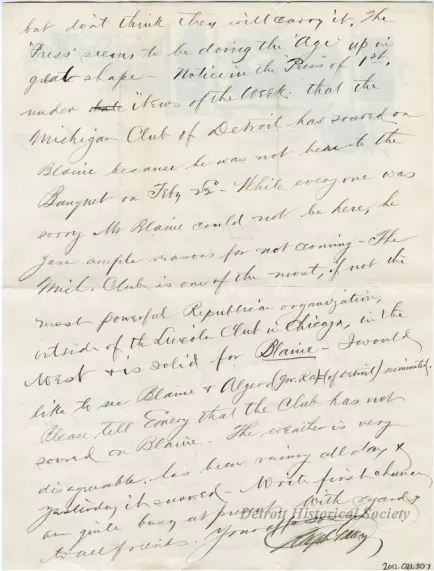 but don't think they will carry it. The
"Press" seems to be doing the "Age" up in
great shape - Notice in the Press of 1st,
under date "News of the Week" that the
Michigan Club of Detroit has soured on
Blaine because he was not here to the
Banquet on Feby 22nd - While everyone was
sorry Mr Blaine could not be here, he
gave ample reasons for not coming - The
Mich. Club is one of the most, if not the
most powerful Republican organization,
outside of the Lincoln Club in Chicago, in the
West & is solid for Blaine - I would
like to see Blaine & Alger, (of Detroit) nominated.
Please tell Emery that the Club has not
soured on Blaine. The weather is very
disagreeable, has been rainy all day &
yesterday it snowed - Write first chance
am quite busy at present. With regards
to all friends. Yours
Detroit Historical Society
2012.021.307